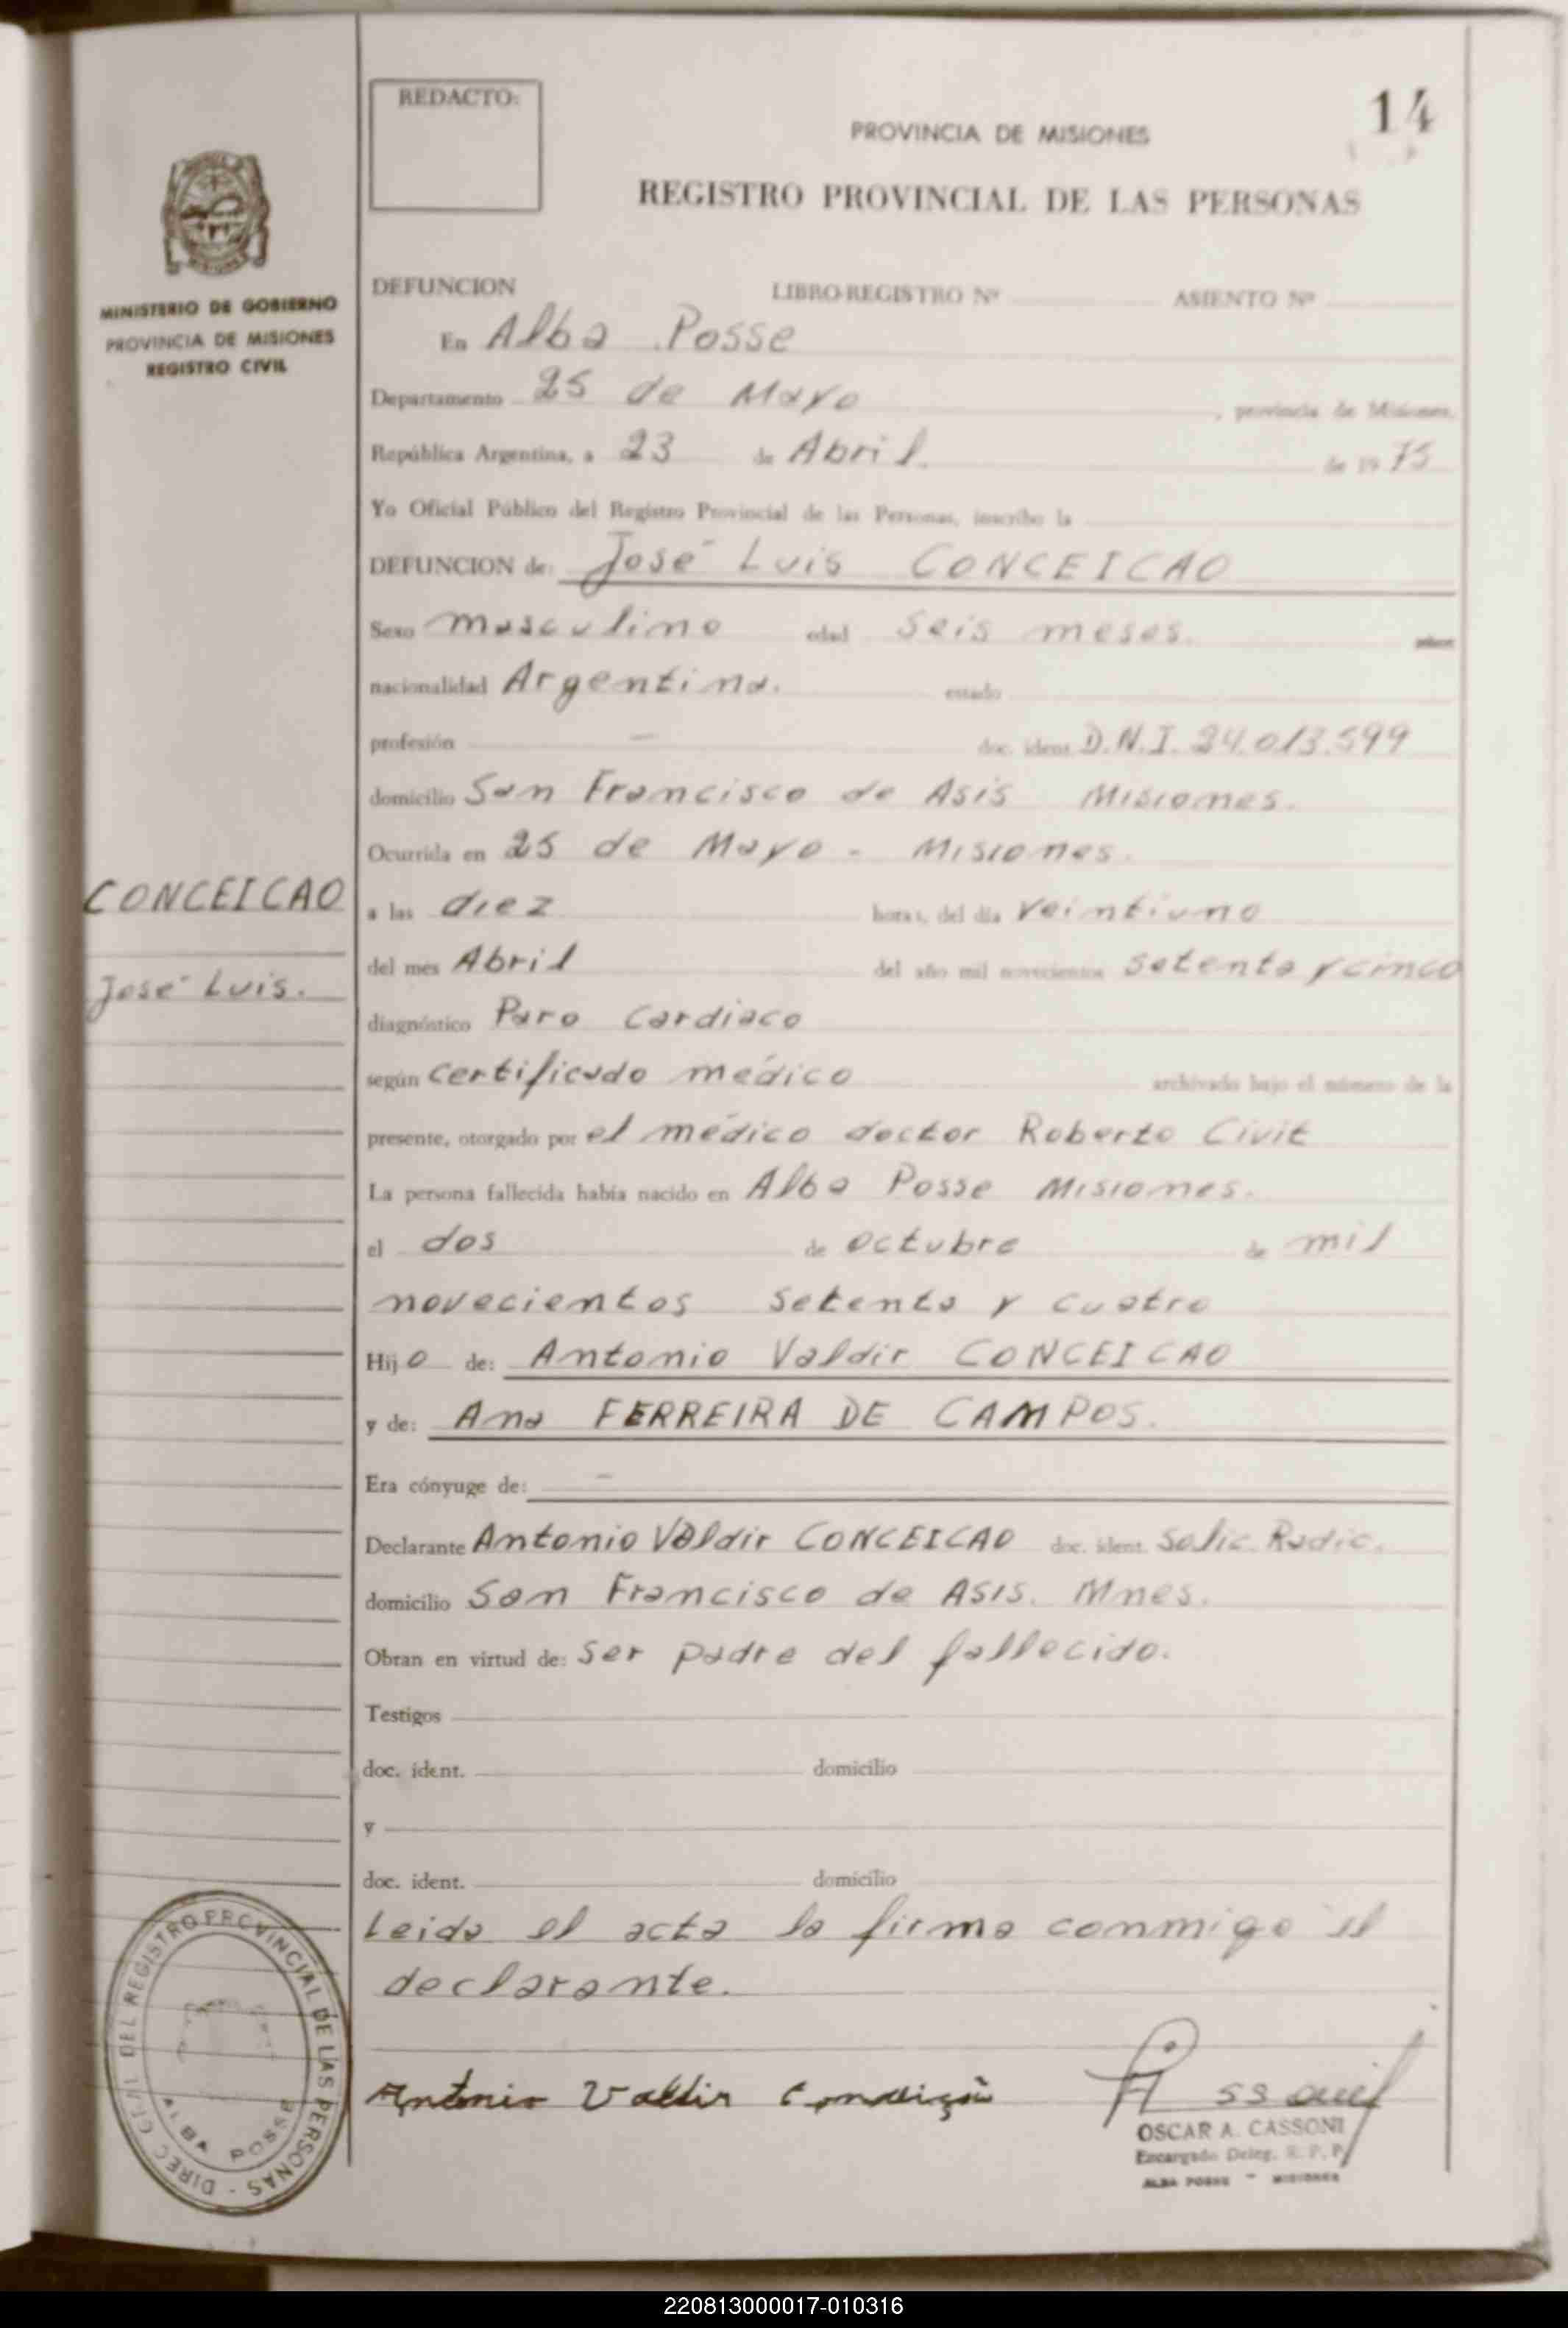 REDACTO:
14
PROVINCIA DE MISIONES
REGISTRO PROVINCIAL DE LAS PERSONAS
MISIONES
MINISTERIO DE GOBIERNO
PROVINCIA DE MISIONES
REGISTRO CIVIL
DEFUNCION LIBRO-REGISTRO Nº ASIENTO Nº
En Alba Posse
Departamento 25 de Mayo , provincia de Misiones,
República Argentina, a 23 de Abril de 1975
Yo Oficial Público del Registro Provincial de las Personas, inscribo la
DEFUNCION de: José Luis CONCEICAO
Sexo masculino edad seis meses.
nacionalidad Argentina. estado
profesión — doc. ident. D.N.I. 24.013.599
domicilio San Francisco de Asis Misiones.
Ocurrida en 25 de Mayo - Misiones.
CONCEICAO
a las diez horas, del día veintiuno
del mes Abril del año mil novecientos setenta y cinco
José Luis.
diagnóstico Paro Cardiaco
según certificado médico archivado bajo el número de la
presente, otorgado por el médico doctor Roberto Civit
La persona fallecida había nacido en Alba Posse Misiones.
el dos de octubre de mil
novecientos setenta y cuatro
Hijo de: Antonio Valdir CONCEICAO
y de: Ana FERREIRA DE CAMPOS.
Era cónyuge de: —
Declarante Antonio Valdir CONCEICAO doc. ident. Solic. Radic.
domicilio San Francisco de Asis. Mnes.
Obran en virtud de: ser padre del fallecido.
Testigos
doc. ident. domicilio
y
doc. ident. domicilio
Leida el acta la firma conmigo el
declarante.
DIREC. GRAL. DEL REGISTRO PROVINCIAL DE LAS PERSONAS -
ALBA POSSE
Antonio Valdir
OSCAR A. CASSONI
Encargado Deleg. R. P. P.
ALBA POSSE - MISIONES
220813000017-010316